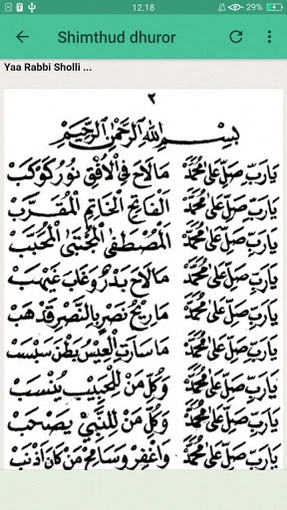 12.18
29%
Shimthud dhuror
Yaa Rabbi Sholli ...
٢
بِسْمِ اللهِ الرَّحْمٰنِ الرَّحِيْمِ
يَارَبِّ صَلِّ عَلىٰ مُحَمَّدْ مَالَاحَ فِي الْاُفُقِ نُوْرُ كَوْكَبْ
يَارَبِّ صَلِّ عَلىٰ مُحَمَّدْ الْفَاتِحِ الْخَاتِمِ الْمُقَرَّبْ
يَارَبِّ صَلِّ عَلىٰ مُحَمَّدْ الْمُصْطَفَى الْمُجْتَبَى الْمُحَبَّبْ
يَارَبِّ صَلِّ عَلىٰ مُحَمَّدْ مَالَاحَ بَدْرٌ وَغَابَ غَيْهَبْ
يَارَبِّ صَلِّ عَلىٰ مُحَمَّدْ مَارِيْحُ نَصْرٍ بِالنَّصْرِ قَدْ هَبْ
يَارَبِّ صَلِّ عَلىٰ مُحَمَّدْ مَاسَارَتِ الْعِيْسُ بَطْنَ سَبْسَبْ
يَارَبِّ صَلِّ عَلىٰ مُحَمَّدْ وَكُلِّ مَنْ لِلْحَبِيْبِ يُنْسَبْ
يَارَبِّ صَلِّ عَلىٰ مُحَمَّدْ وَكُلِّ مَنْ لِلنَّبِيِّ يَصْحَبْ
يَارَبِّ صَلِّ عَلىٰ مُحَمَّدْ وَاغْفِرْ وَسَامِحْ مَنْ كَانَ اَذْنَبْ